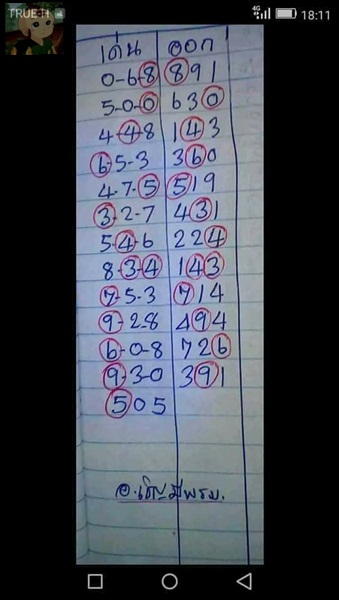 TRUE-H 4G 18:11
เด่น ออก
0-6-8 891
5-0-0 630
4-4-8 143
6-5-3 360
4-7-5 519
3-2-7 431
5-4-6 224
8-3-4 143
7-5-3 714
9-2-8 494
6-0-8 726
9-3-0 391
505